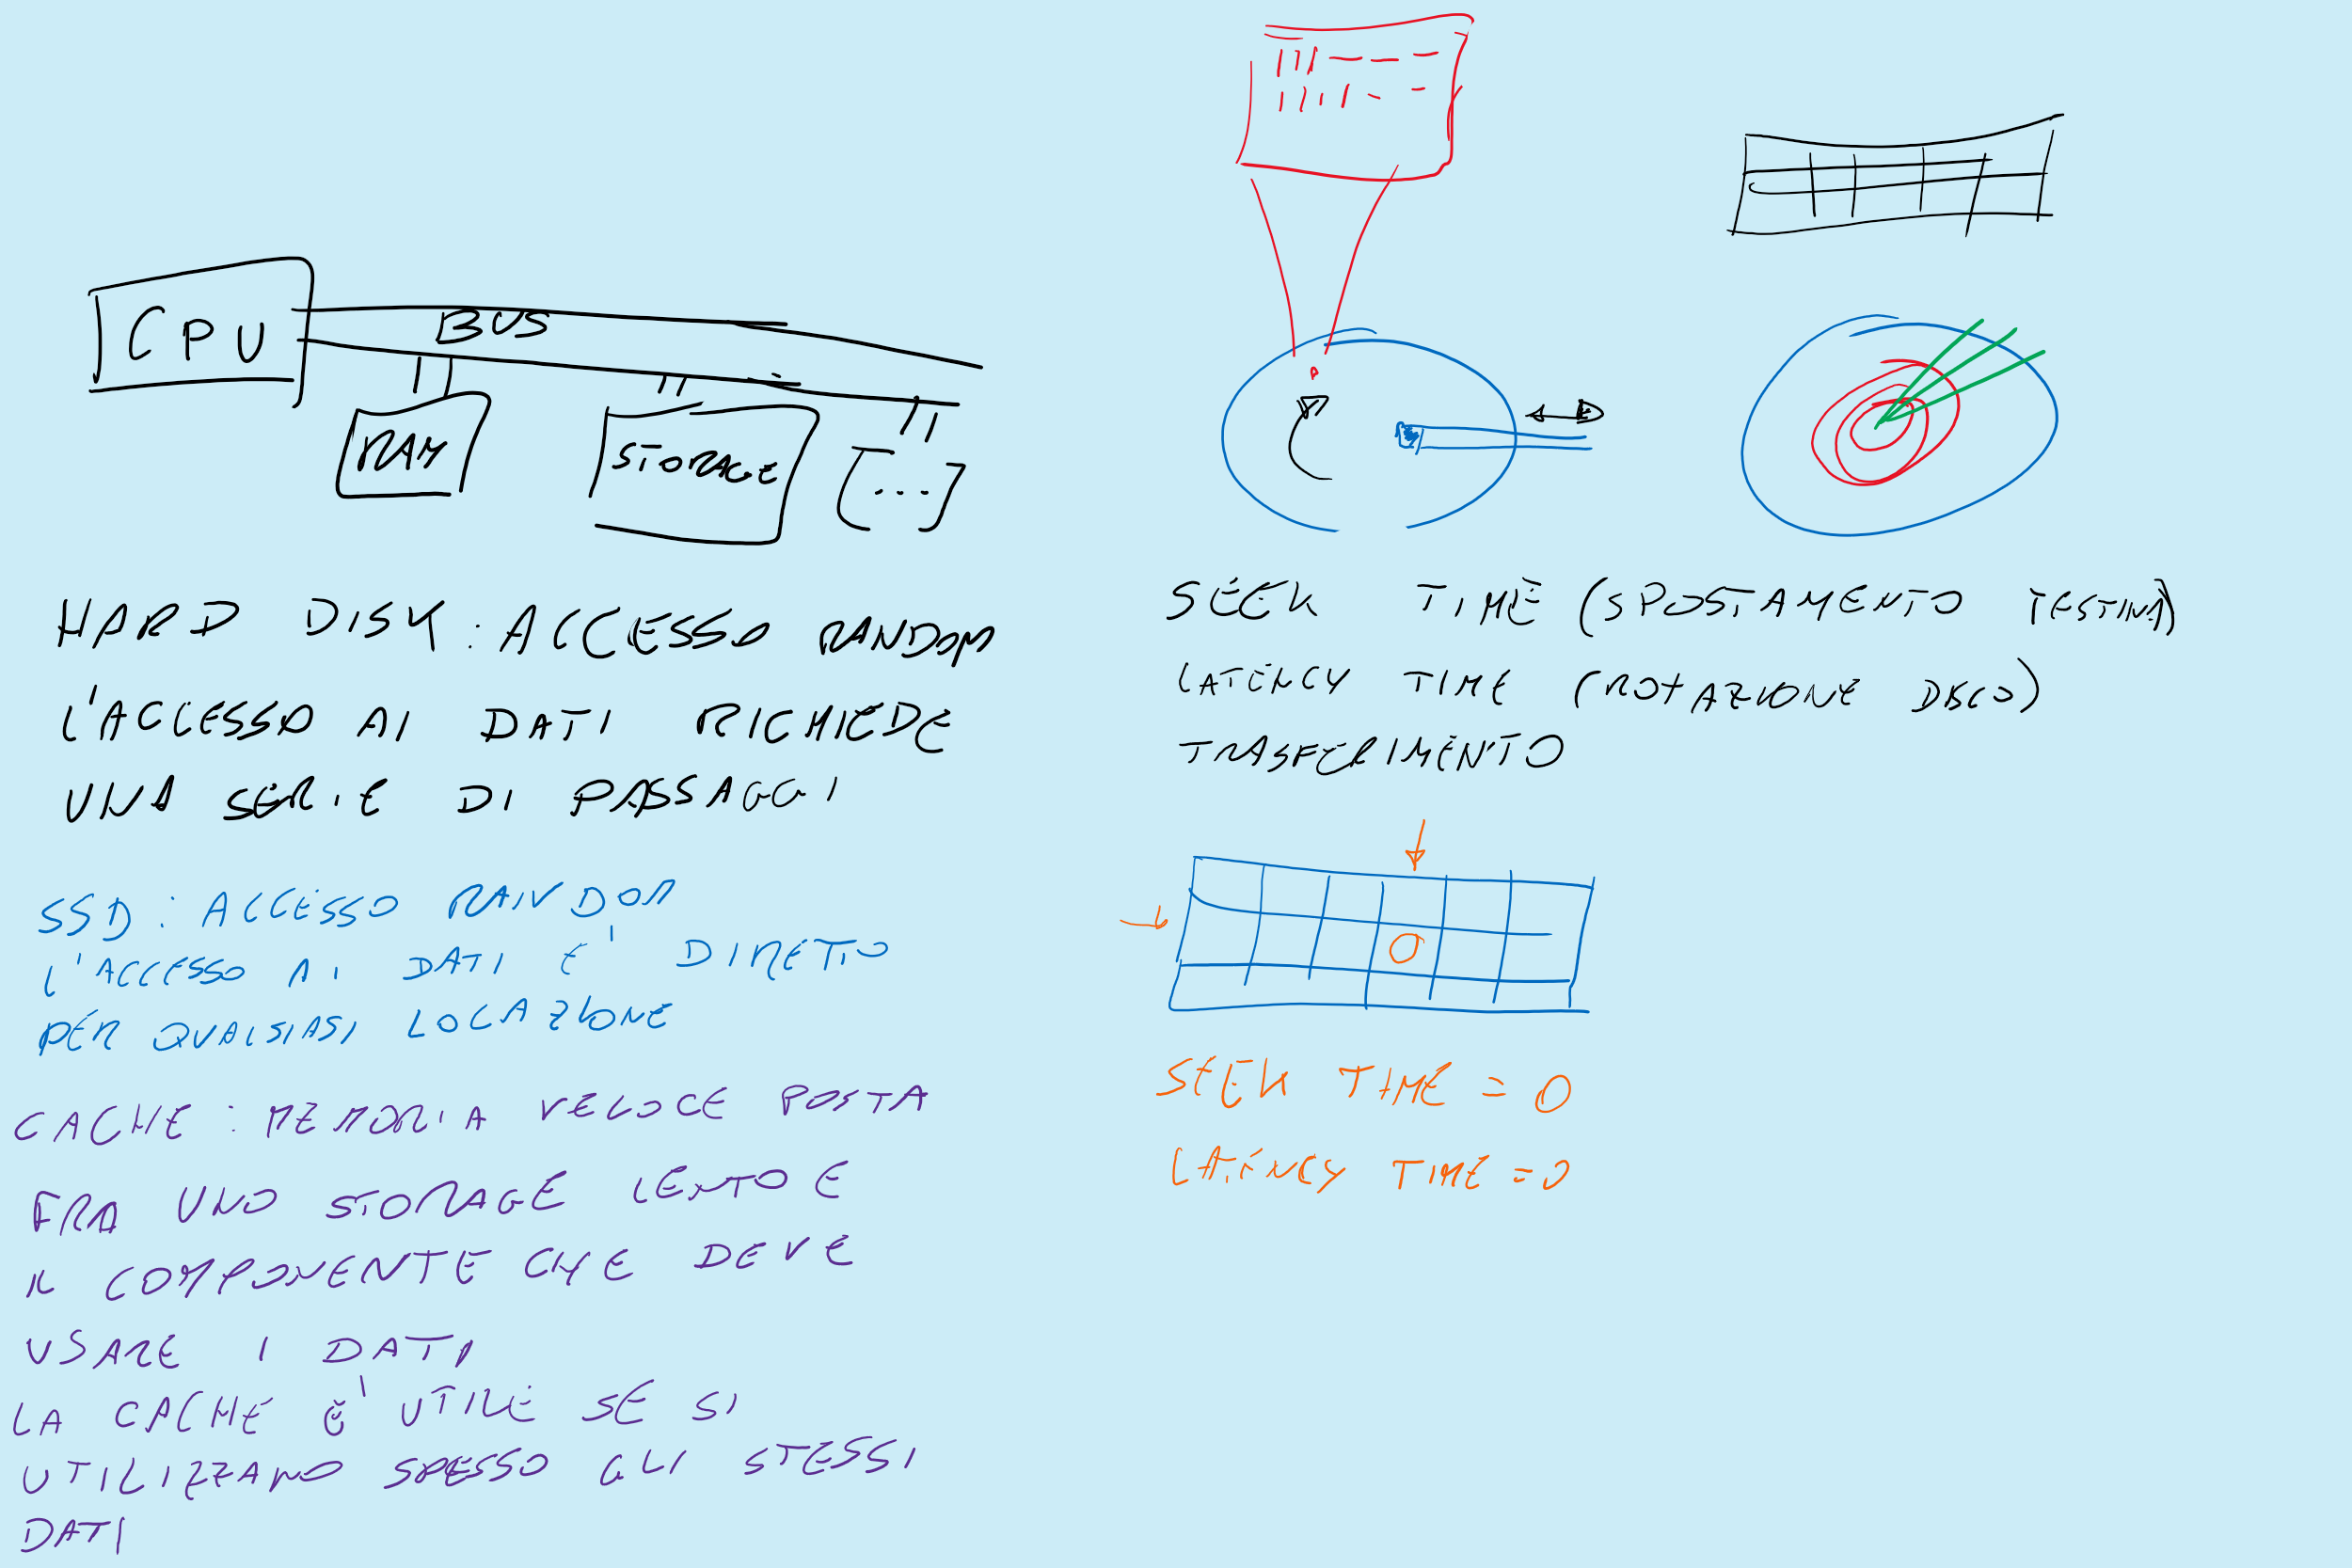 CPU
BUS
RAM
STORAGE
[...]
HARD DISK: ACCESSO RANDOM
L'ACCESSO AI DATI RICHIEDE
UNA SERIE DI PASSAGGI
SSD: ACCESSO RANDOM
L'ACCESSO AI DATI E' DIRETTO
PER QUALSIASI LOCAZIONE
CACHE: MEMORIA VELOCE POSTA
FRA UNO STORAGE LENTO E
IL COMPONENTE CHE DEVE
USARE I DATI
LA CACHE E' UTILE SE SI
UTILIZZANO SPESSO GLI STESSI
DATI
SEEK TIME (SPOSTAMENTO TESTINA)
LATENCY TIME (ROTAZIONE DISCO)
TRASFERIMENTO
SEEK TIME = 0
LATENCY TIME = 0